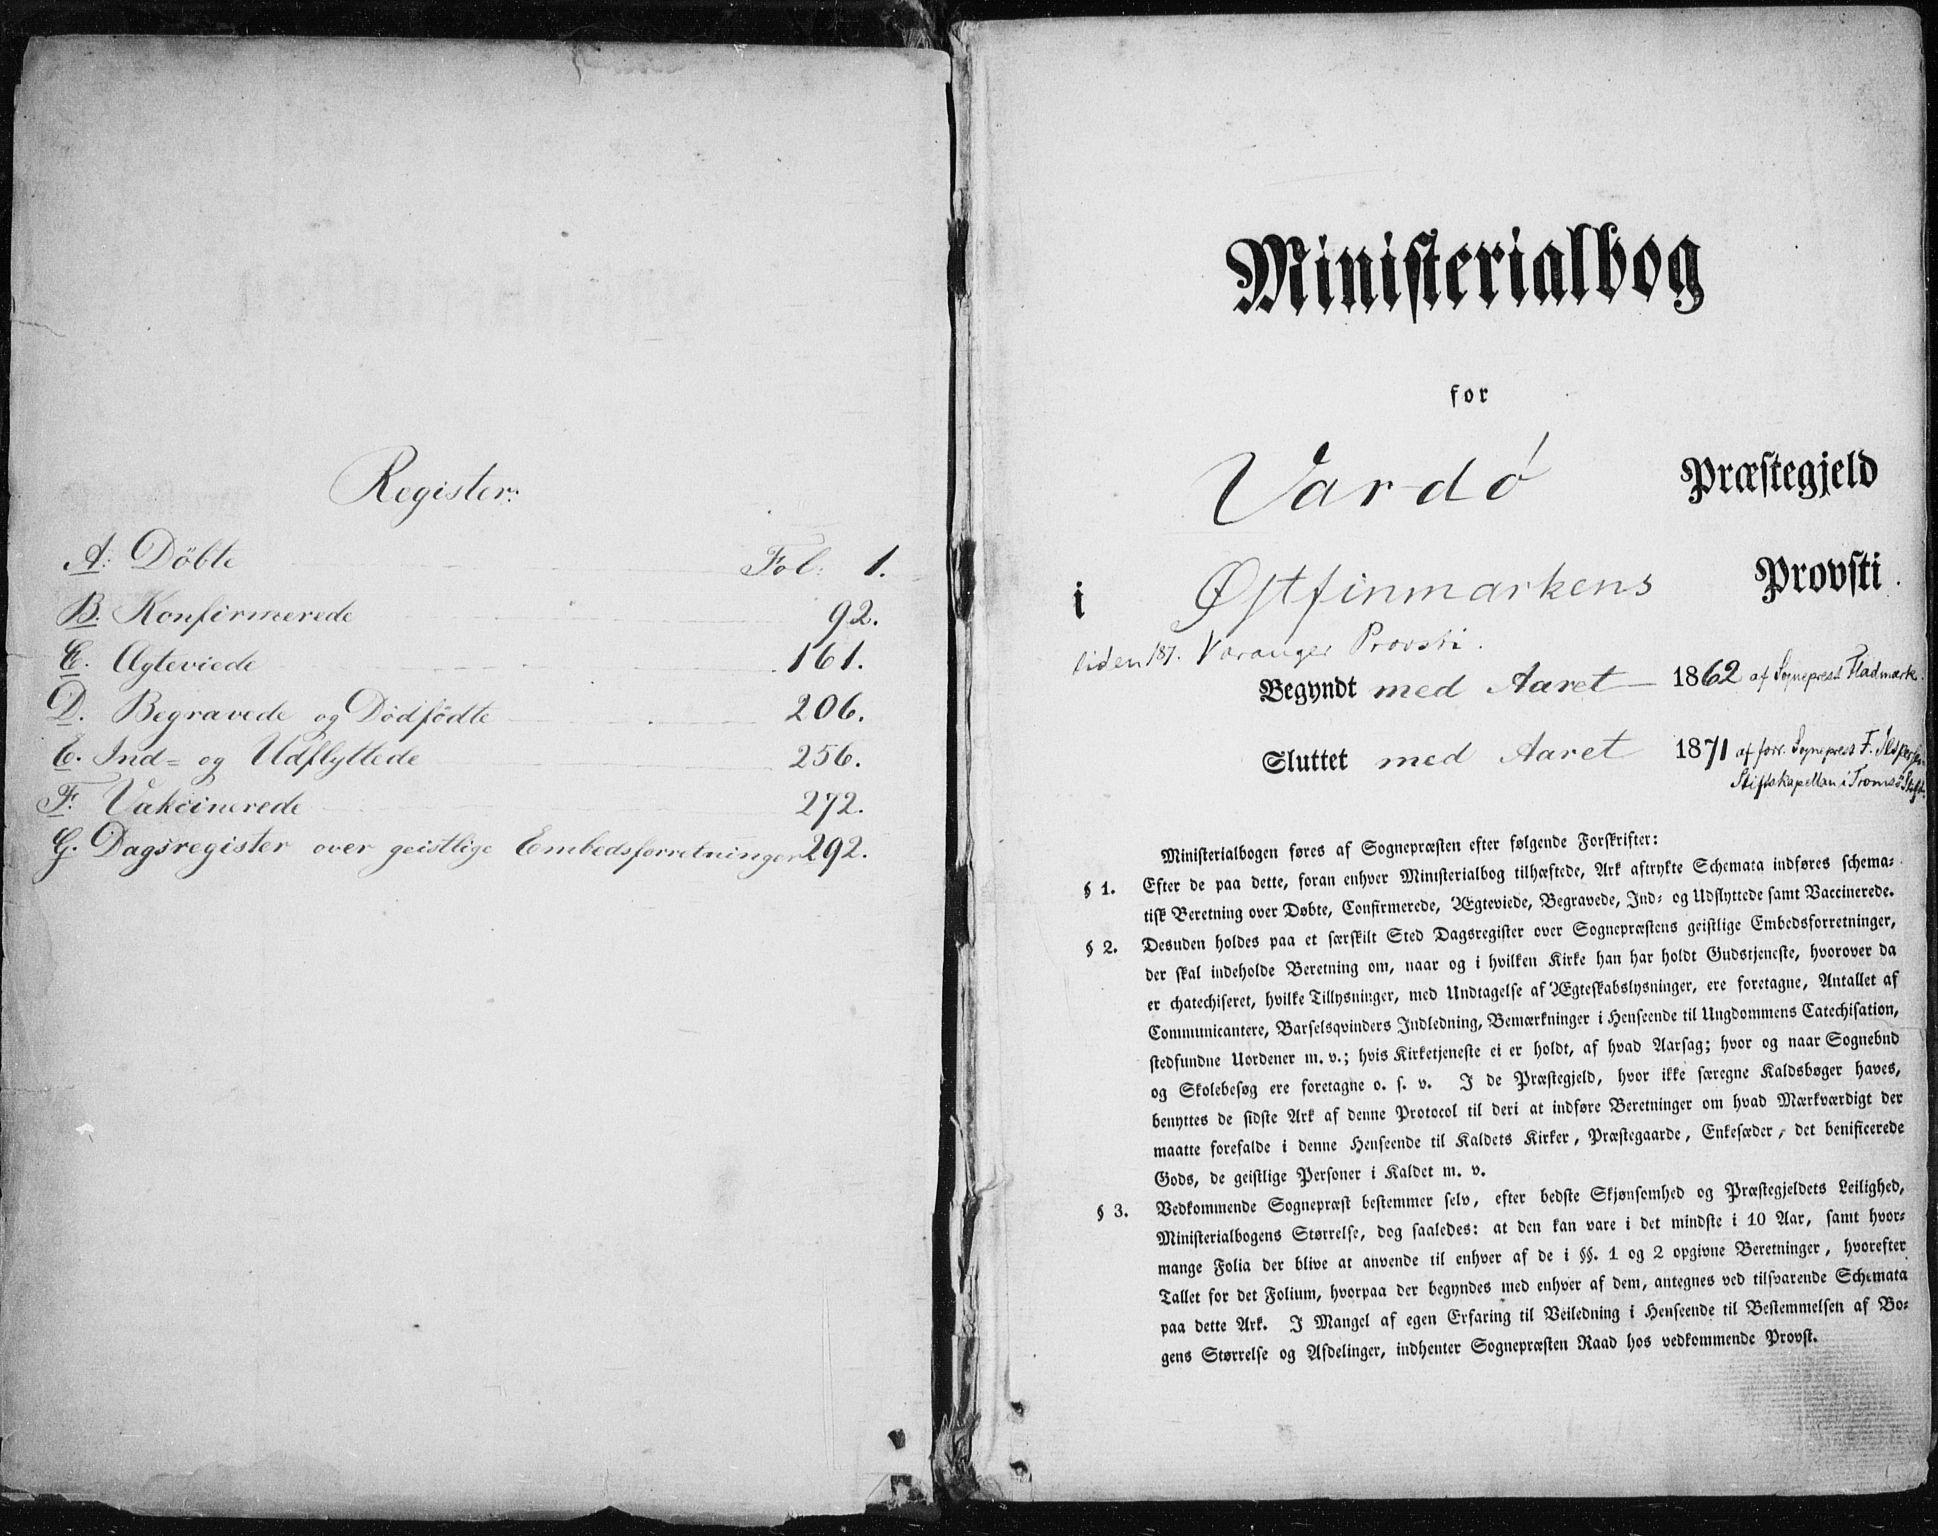 Register:
A: Döbte Fol: 1.
B. Konfirmerede 92.
C. Ægteviede 161.
D. Begravede og Dødfødte 206.
E. Ind= og Udflyttede 256.
F. Vakcinerede 272.
G. Dagsregister over geistlige Embedsforretninger 292.
Ministerialbog
for
Vardø Præstegjeld
i Østfinmarkens Provsti.
siden 187. Varanger Provsti.
Begyndt med Aaret 1862 af Sognepræst Fladmark.
Sluttet med Aaret 1871 af forr. Sognepræst F.
Stiftskapellan i Tromsö Stift.
Ministerialbogen føres af Sognepræsten efter følgende Forskrifter:
§ 1. Efter de paa dette, foran enhver Ministerialbog tilhæftede, Ark aftrykte Schemata indføres schema-
tisk Beretning over Døbte, Confirmerede, Ægteviede, Begravede, Ind- og Udflyttede samt Vaccinerede.
§ 2. Desuden holdes paa et særskilt Sted Dagsregister over Sognepræstens geistlige Embedsforretninger,
der skal indeholde Beretning om, naar og i hvilken Kirke han har holdt Gudstjeneste, hvorover da
er chatechiseret, hvilke Tillysninger, med Undtagelse af Ægteskabslysninger, ere foretagne, Antallet af
Communicantere, Barselsqvinders Indledning, Bemærkninger i Henseende til Ungdommens Catechisation,
stedfundne Uordener m. v.; hvis Kirketjeneste ei er holdt, af hvad Aarsag; hvor og naar Sognebud
og Skolebesøg ere foretagne o. s. v. I de Præstegjeld, hvor ikke særegne Kaldsbøger haves,
benyttes de sidste Ark af denne Protocol til deri at indføre Beretninger om hvad Mærkværdigt der
maatte forefalde i denne Henseende til Kaldets Kirker, Præstegaarde, Enkesæder, det benificerede
Gods, de geistlige Personer i Kaldet m. v.
§ 3. Vedkommende Sognepræst bestemmer selv, efter bedste Skjønsomhed og Præstegjeldets Leilighed,
Ministerialbogens Størrelse, dog saaledes: at den kan vare i det mindste i 10 Aar, samt hvor-
mange Folia der blive at anvende til enhver af de i §§. 1 og 2 opgivne Beretninger, hvorefter
Tallet for det Folium, hvorpaa der begyndes med enhver af dem, antegnes ved tilsvarende Schemata
paa dette Ark. I Mangel af egen Erfaring til Veiledning i Henseende til Bestemmelsen af Bo-
gens Størrelse og Afdelinger, indhenter Sognepræsten Raad hos vedkommende Provst.